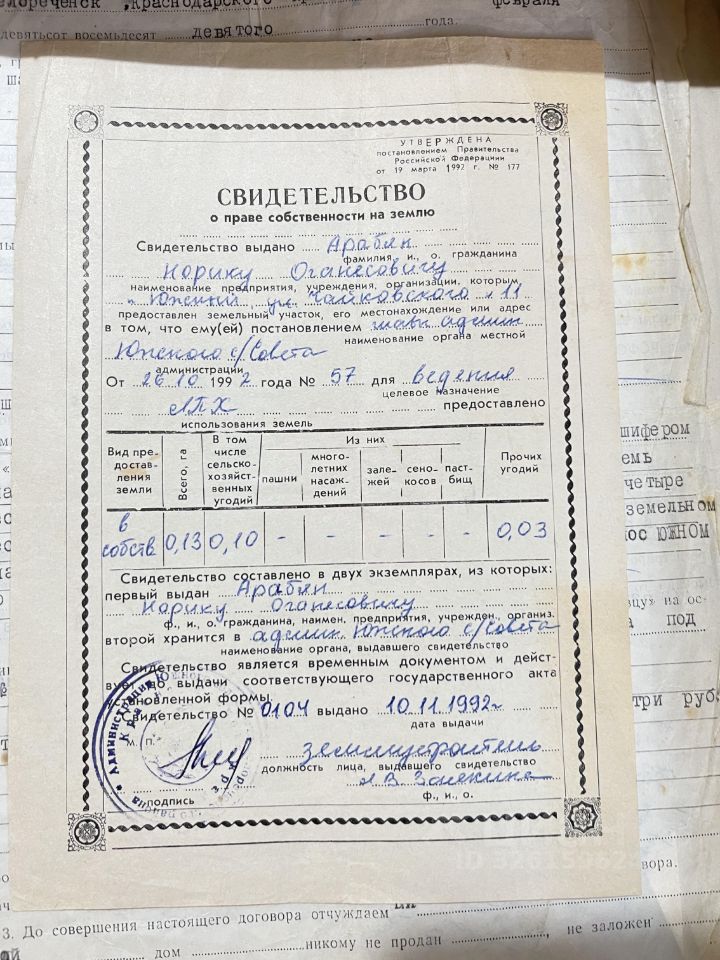 елореченск, Краснодарского
февраля
девятьсот восемьдесят девятого года.
УТВЕРЖДЕНА
постановлением Правительства
Российской Федерациии
от 19 марта 1992 г. № 177
СВИДЕТЕЛЬСТВО
о праве собственности на землю
Свидетельство выдано Арабян
фамилия и., о. гражданина
Норику Оганесовичу
наименование предприятия, учреждения, организации, которым
п. Южный ул. Чайковского 11
предоставлен земельный участок, его местонахождение или адрес
в том, что ему(ей) постановлением главы админ
наименование органа местной
Южского с/Совета
администрации
От 26 10 1992 года № 57 для ведения
целевое назначение
ЛПХ предоставлено
использования земель
Вид предоставления земли
Всего, га
В том числе сельскохозяйственных угодий
Из них
пашни
многолетних насаждений
залежей
сенокосов
пастбищ
Прочих угодий
в собств 0,13 0,10 - - - - - 0,03
Свидетельство составлено в двух экземплярах, из которых:
первый выдан Арабян
Норику Оганесовичу
ф., и., о. гражданина, наимен. предприятия, учрежден., организ.
второй хранится в админ. Южского с/Совета
наименование органа, выдавшего свидетельство
Свидетельство является временным документом и дейст-
вует до выдачи соответствующего государственного акта
установленной формы.
Свидетельство № 0104 выдано 10.11.1992г
дата выдачи
М. П.
землеустроитель
должность лица, выдавшего свидетельство
ф., и., о.
подпись
Администрация Южног
шифером
емь
четыре
земельном
пос ЮЖНОМ
вцу» на ос-
под
три руб
вора.
3. До совершения настоящего договора отчуждаем
дом никому не продан , не заложен